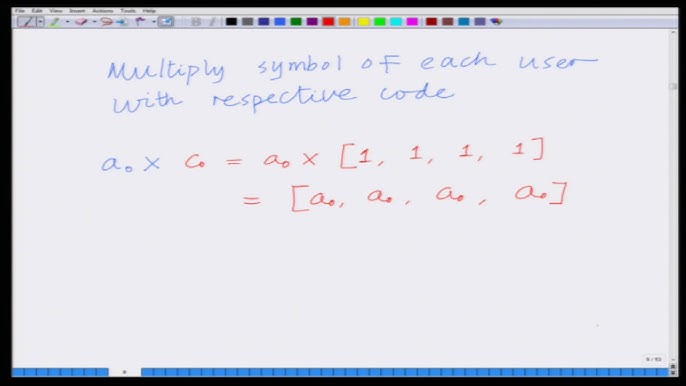 File Edit View Insert Actions Tools Help
Multiply symbol of each user
with respective code
a₀ × c₀ = a₀ × [1, 1, 1, 1]
= [a₀, a₀, a₀, a₀]